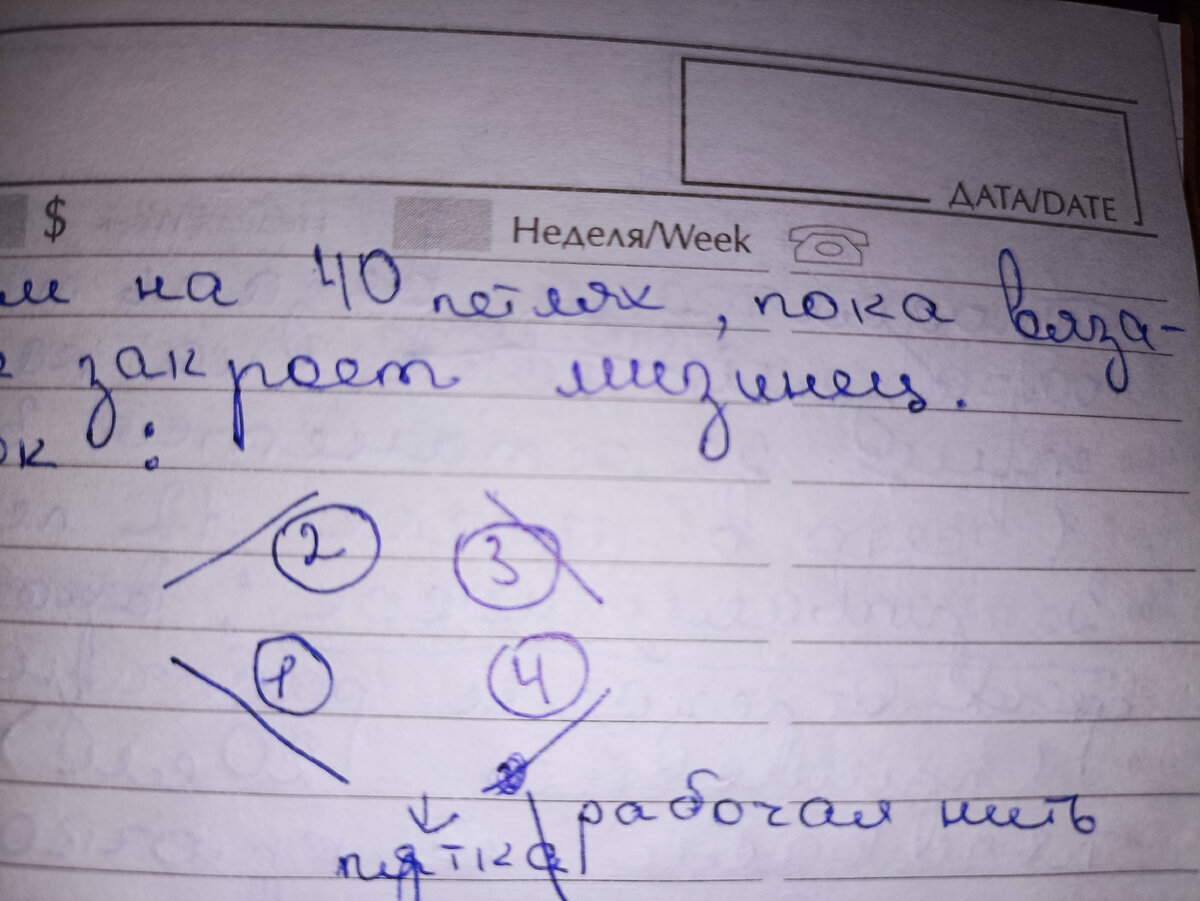 ДАТА/DATE
$ Неделя/Week
на 40 петлях, пока вяза-
закроет мизинец.
ок :
2 3
1 4
рабочая нить
пятка